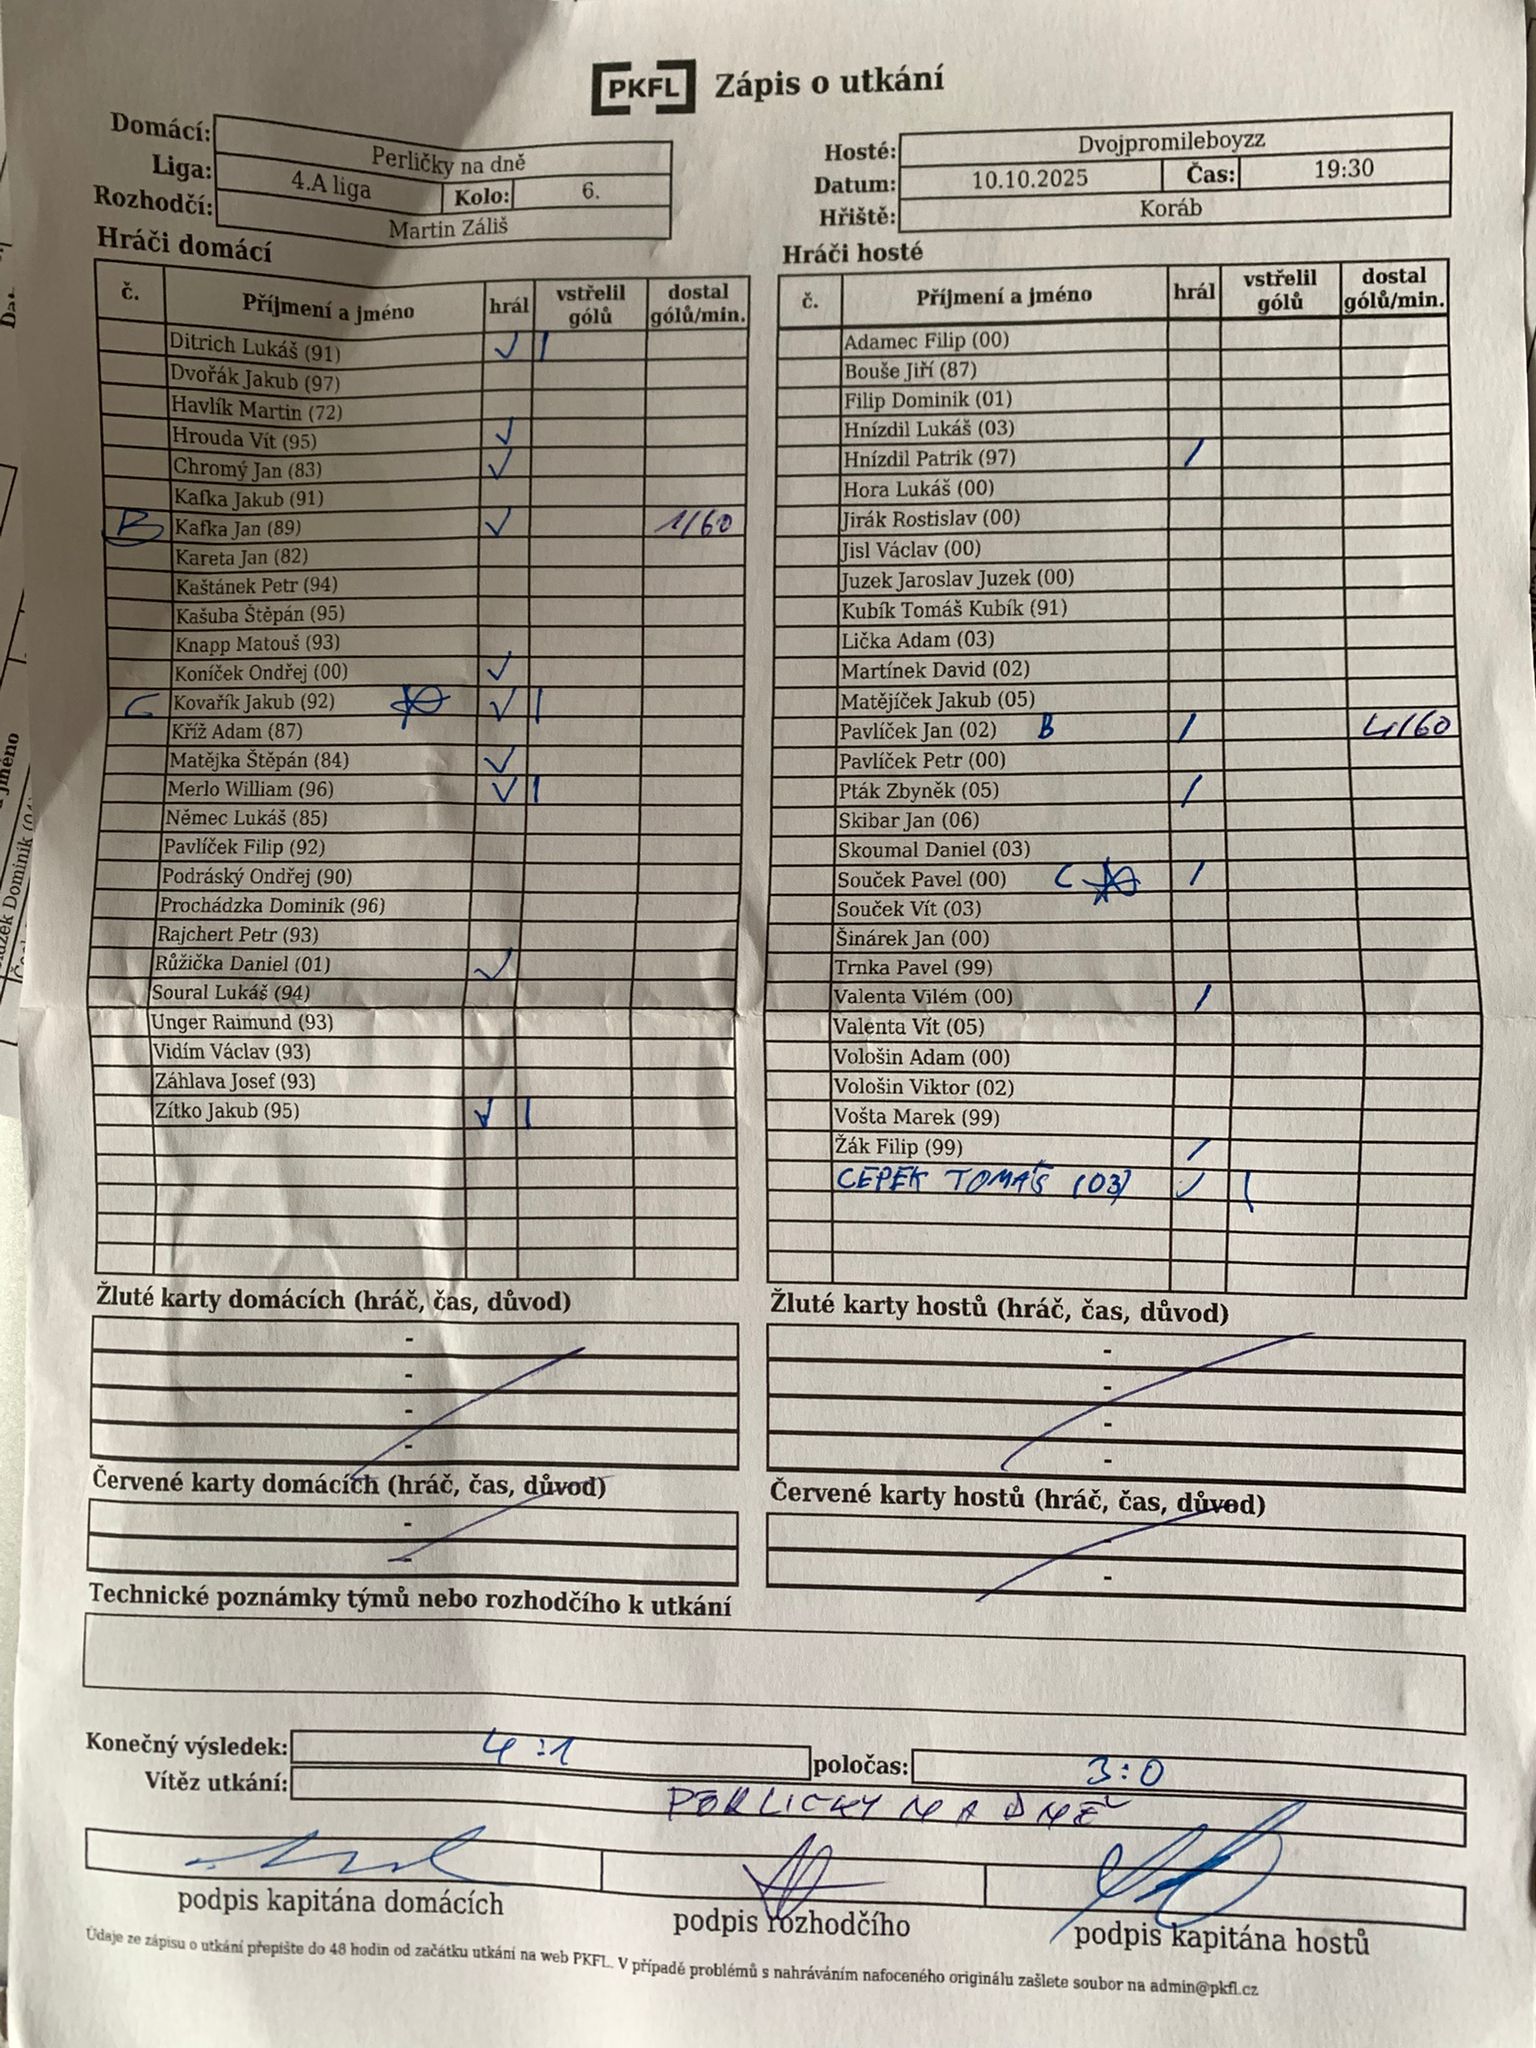 PKFL Zápis o utkání
Domácí: Perličky na dně
Liga: 4.A liga Kolo: 6.
Rozhodčí: Martin Záliš
Hosté: Dvojpromileboyzz
Datum: 10.10.2025 Čas: 19:30
Hřiště: Koráb
Hráči domácí
č. Příjmení a jméno hrál vstřelil gólů dostal gólů/min.
Ditrich Lukáš (91) ✓ |
Dvořák Jakub (97)
Havlík Martin (72)
Hrouda Vít (95) ✓
Chromý Jan (83) ✓
Kafka Jakub (91)
B Kafka Jan (89) ✓ 1/60
Kareta Jan (82)
Kaštánek Petr (94)
Kašuba Štěpán (95)
Knapp Matouš (93)
Koníček Ondřej (00) ✓
C Kovařík Jakub (92) ☆ ✓ |
Kříž Adam (87)
Matějka Štěpán (84) ✓
Merlo William (96) ✓ |
Němec Lukáš (85)
Pavlíček Filip (92)
Podráský Ondřej (90)
Procházka Dominik (96)
Rajchert Petr (93)
Růžička Daniel (01) ✓
Soural Lukáš (94)
Unger Raimund (93)
Vidím Václav (93)
Záhlava Josef (93)
Zítko Jakub (95) ✓ |
Hráči hosté
č. Příjmení a jméno hrál vstřelil gólů dostal gólů/min.
Adamec Filip (00)
Bouše Jiří (87)
Filip Dominik (01)
Hnízdil Lukáš (03)
Hnízdil Patrik (97) /
Hora Lukáš (00)
Jirák Rostislav (00)
Jisl Václav (00)
Juzek Jaroslav Juzek (00)
Kubík Tomáš Kubík (91)
Lička Adam (03)
Martínek David (02)
Matějíček Jakub (05)
Pavlíček Jan (02) B / 4/60
Pavlíček Petr (00)
Pták Zbyněk (05) /
Skibar Jan (06)
Skoumal Daniel (03)
Souček Pavel (00) C ☆ /
Souček Vít (03)
Šinárek Jan (00)
Trnka Pavel (99)
Valenta Vilém (00) /
Valenta Vít (05)
Vološin Adam (00)
Vološin Viktor (02)
Vošta Marek (99)
Žák Filip (99) /
CEPEK TOMÁŠ (03) ✓ |
Žluté karty domácích (hráč, čas, důvod)
-
-
-
-
Žluté karty hostů (hráč, čas, důvod)
-
-
-
-
Červené karty domácích (hráč, čas, důvod)
-
-
Červené karty hostů (hráč, čas, důvod)
-
-
Technické poznámky týmů nebo rozhodčího k utkání
Konečný výsledek: 4:1 poločas: 3:0
Vítěz utkání: PERLICKY NA DNĚ
podpis kapitána domácích podpis rozhodčího podpis kapitána hostů
Údaje ze zápisu o utkání přepište do 48 hodin od začátku utkání na web PKFL. V případě problémů s nahráváním nafoceného originálu zašlete soubor na admin@pkfl.cz